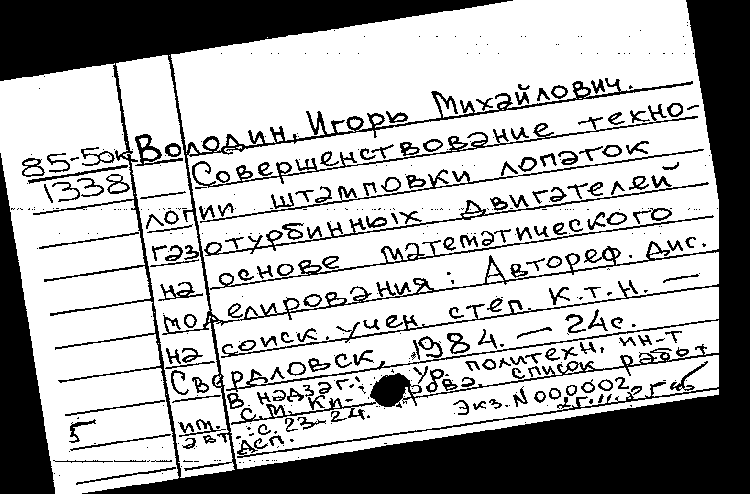 Володин, Игорь Михайлович.
85-5ок
1338
Совершенствование техно-
логии штамповки лопаток
газотурбинных двигателей
на основе математического
моделирования: Автореф. дис.
на соиск. учен. степ. к.т.н. —
Свердловск, 1984. — 24с.
В надзаг.: Ур. политехн. ин-т
им. С.М. Ки- рова. список работ
авт.: с. 23-24.
Экз. N 000002
дсп.
5